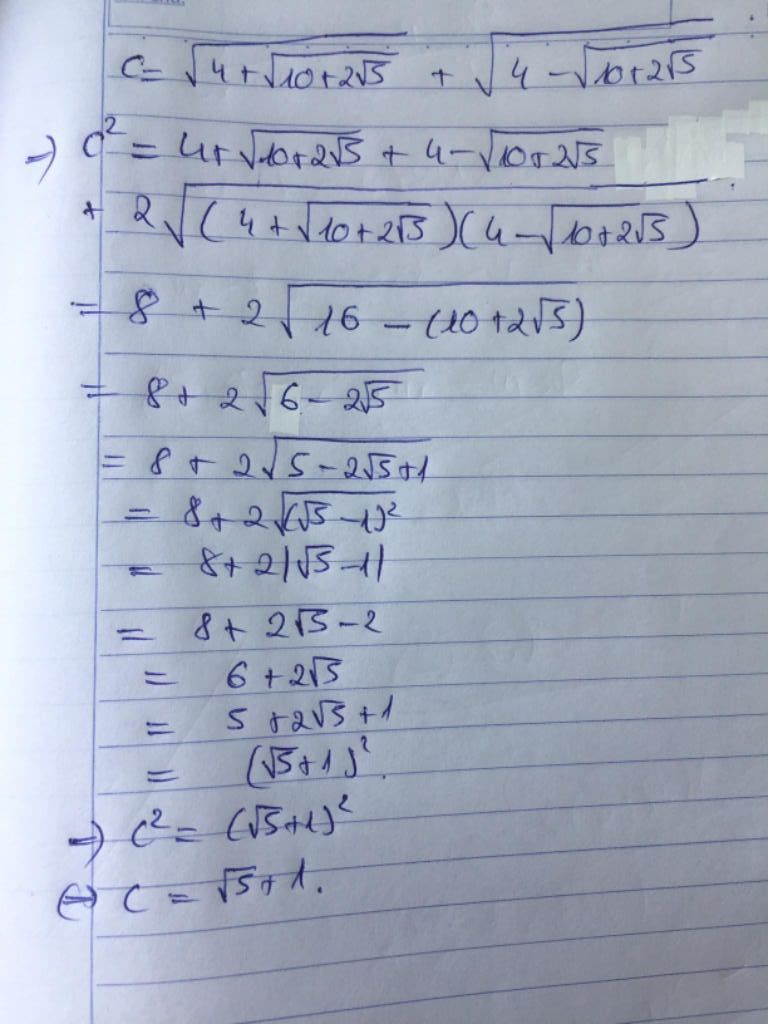 C = √(4 + √(10 + 2√5)) + √(4 − √(10 + 2√5))
→) C² = 4 + √(10 + 2√5) + 4 − √(10 + 2√5)
+ 2√((4 + √(10 + 2√5))(4 − √(10 + 2√5)))
= 8 + 2√(16 − (10 + 2√5))
= 8 + 2√(6 − 2√5)
= 8 + 2√(5 − 2√5 + 1)
= 8 + 2√((√5 − 1)²)
= 8 + 2|√5 − 1|
= 8 + 2√5 − 2
= 6 + 2√5
= 5 + 2√5 + 1
= (√5 + 1)².
→) C² = (√5 + 1)²
(→) C = √5 + 1.